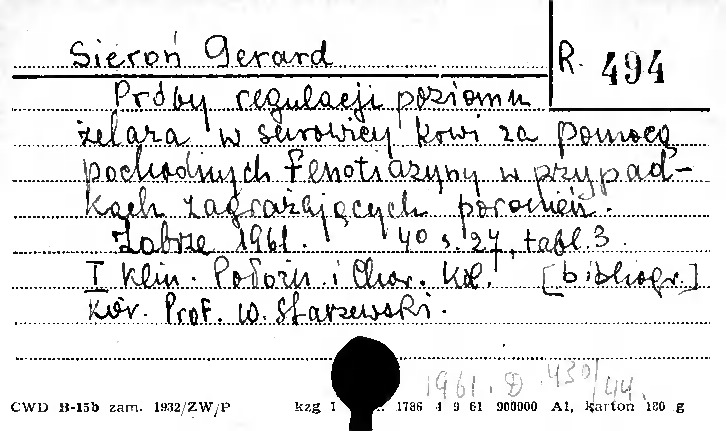 Sieroń Gerard
R. 494
Próby regulacji poziomu
żelaza w surowicy krwi za pomocą
pochodnych fenotiazyny w przypad-
kach zagrażających poronień.
Zabrze 1961. 40 s. 27, tabl. 3.
I Klin. Położn. i Chor. Kob. [bibliogr.]
kier. Prof. W. Starzewski.
1961. D. 430/44.
CWD B-15b zam. 1932/ZW/P kzg 1786 4 9 61 900000 A1, karton 180 g